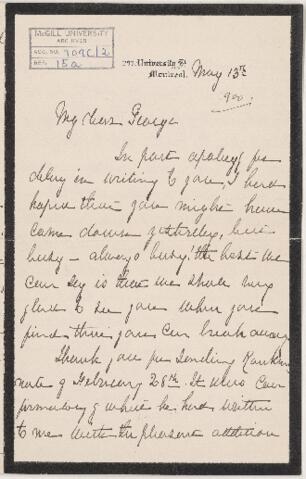 McGILL UNIVERSITY
ARCHIVES
ACC. NO. 909C/2
REF. 15a
293, University St
Montreal.
May 13th
900.
My dear George
In part apology for
delay in writing to you, I had
hoped that you might have
come down yesterday, but
busy – always busy! the best we
can say is that we shall very
glad to see you when you
find that you can break away.
Thank you for sending Rankin
note of February 28th. It was con
firmatory of what he had written
to me with the pleasant addition